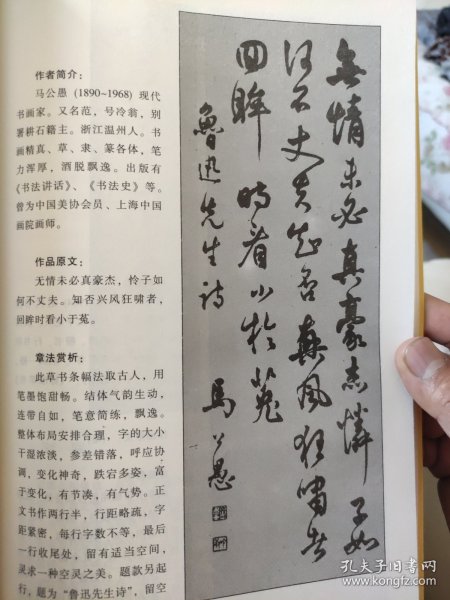 作者简介：
马公愚（1890~1968）现代
书画家。又名范，号冷翁，别
署耕石籍主。浙江温州人。书
画精真、草、隶、篆各体，笔
力浑厚，洒脱飘逸。出版有
《书法讲话》、《书法史》等。
曾为中国美协会员、上海中国
画院画师。
作品原文：
无情未必真豪杰，怜子如
何不丈夫。知否兴风狂啸者，
回眸时看小于菟。
章法赏析：
此草书条幅法取古人，用
笔墨饱酣畅。结体气韵生动，
连带自如，笔意简练，飘逸。
整体布局安排合理，字的大小
干湿浓淡，参差错落，呼应协
调，变化神奇，跌宕多姿，富
于变化，有节凑，有气势。正
文书作两行半，行距略疏，字
距紧密，每行字数不等，最后
一行收尾处，留有适当空间，
灵求一种空灵之美。题款另起
行，题为“鲁迅先生诗”，留空
無情未必真豪杰憐子如
何不丈夫知否興風狂嘯者
回眸時看小於菟
魯迅先生诗
馬公愚
孔夫子旧书网